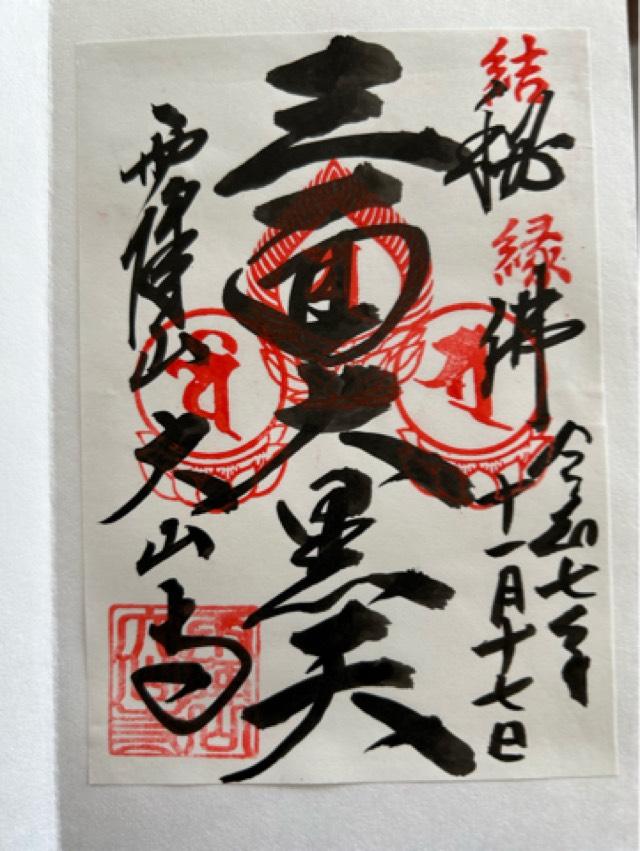 結縁
秘佛
令和七年
十一月十七日
三面大黒天
雨降山大山寺